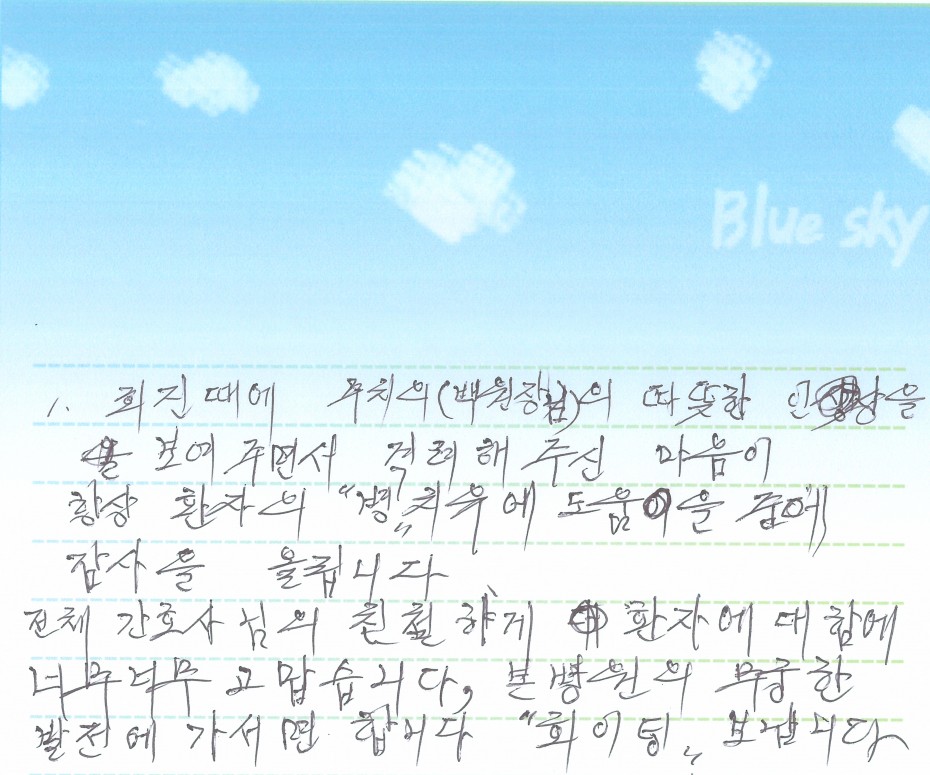 Blue sky
1. 회진때에 주치의(백원장님)의 따뜻한 인상을
보여주면서 격려해 주신 마음이
항상 환자의 "병" 치유에 도움을 줌에
감사을 올립니다
전체 간호사님의 친절하게 환자에 대함에
너무너무 고맙습니다, 본병원의 무궁한
발전에 가서면 합니다 "화이팅" 보냅니다